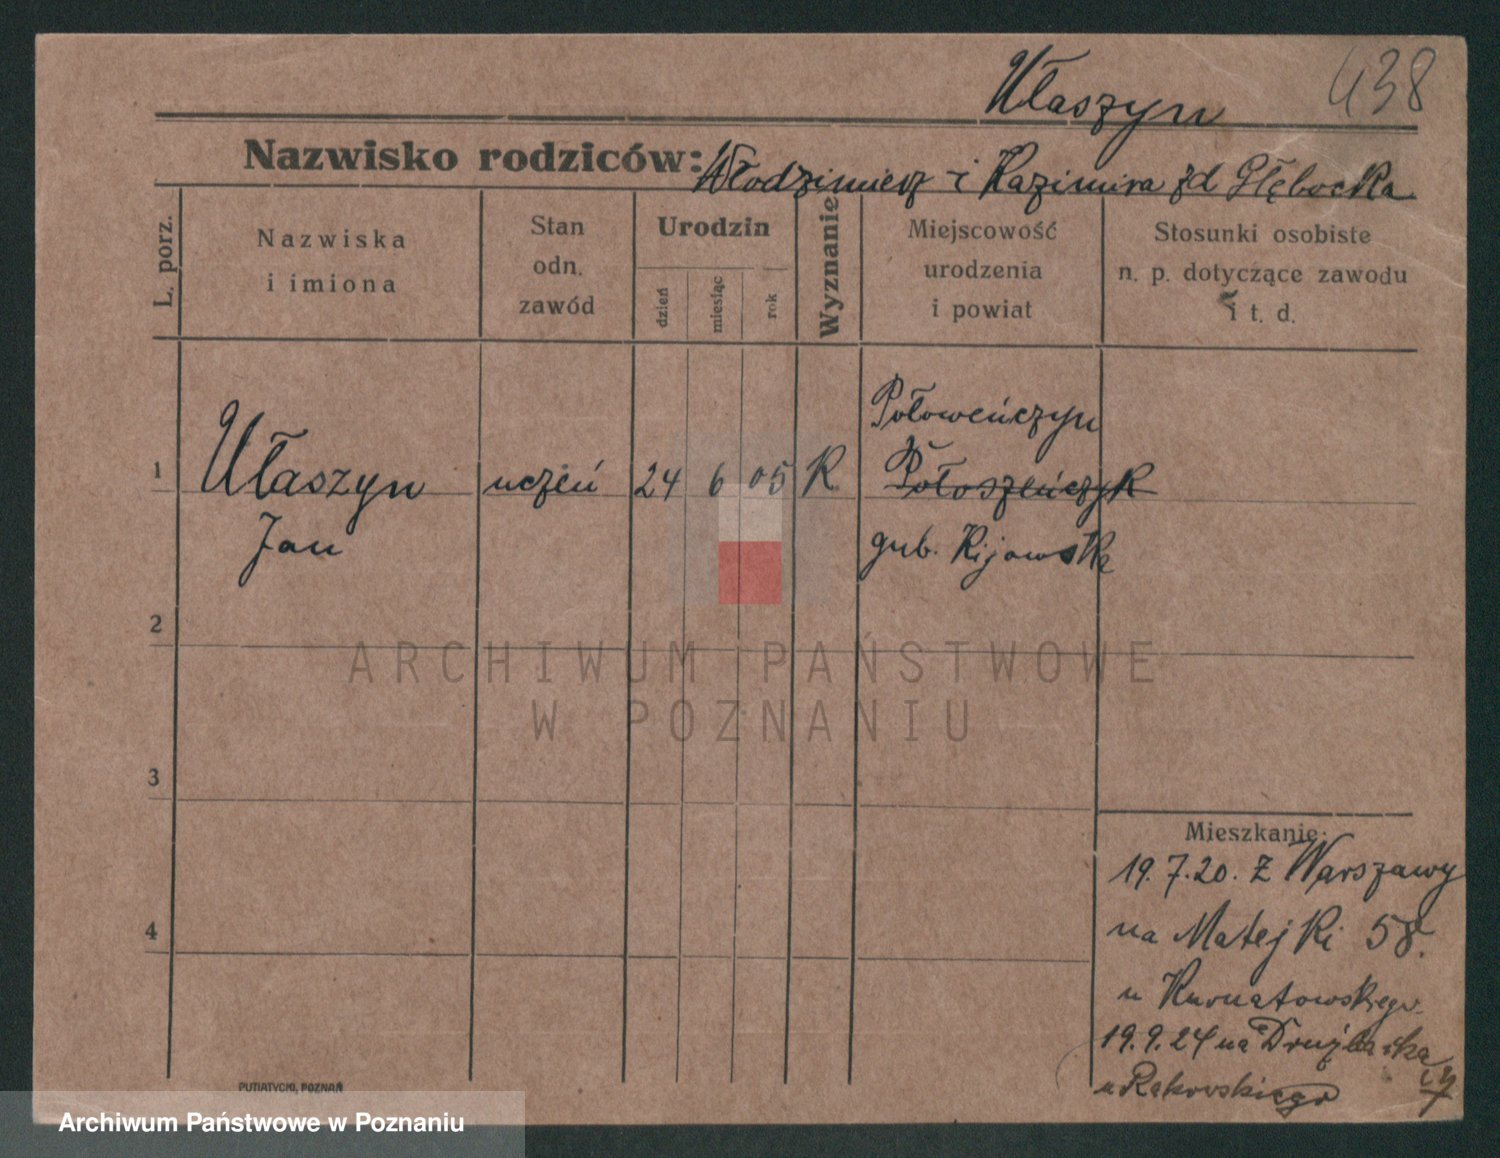 Ułaszyn 438
Nazwisko rodziców: Włodzimierz i Kazimira zd Głębocka
L. porz.
Nazwiska
i imiona
Stan
odn.
zawód
Urodzin
dzień
miesiąc
rok
Wyznanie
Miejscowość
urodzenia
i powiat
Stosunki osobiste
n. p. dotyczące zawodu
i t. d.
1
Ułaszyn
Jan
uczeń
24 6 05
R
Połoweńczyn
Połoszeńczyk
gub. Kijowska
2
3
4
Mieszkanie:
19.7.20. z Warszawy
na Matejki 58.
u Kurnatowskiego.
19.9.24 na
u Rakowskiego
PUTIATYCKI, POZNAŃ
ARCHIWUM PAŃSTWOWE
W POZNANIU
Archiwum Państwowe w Poznaniu